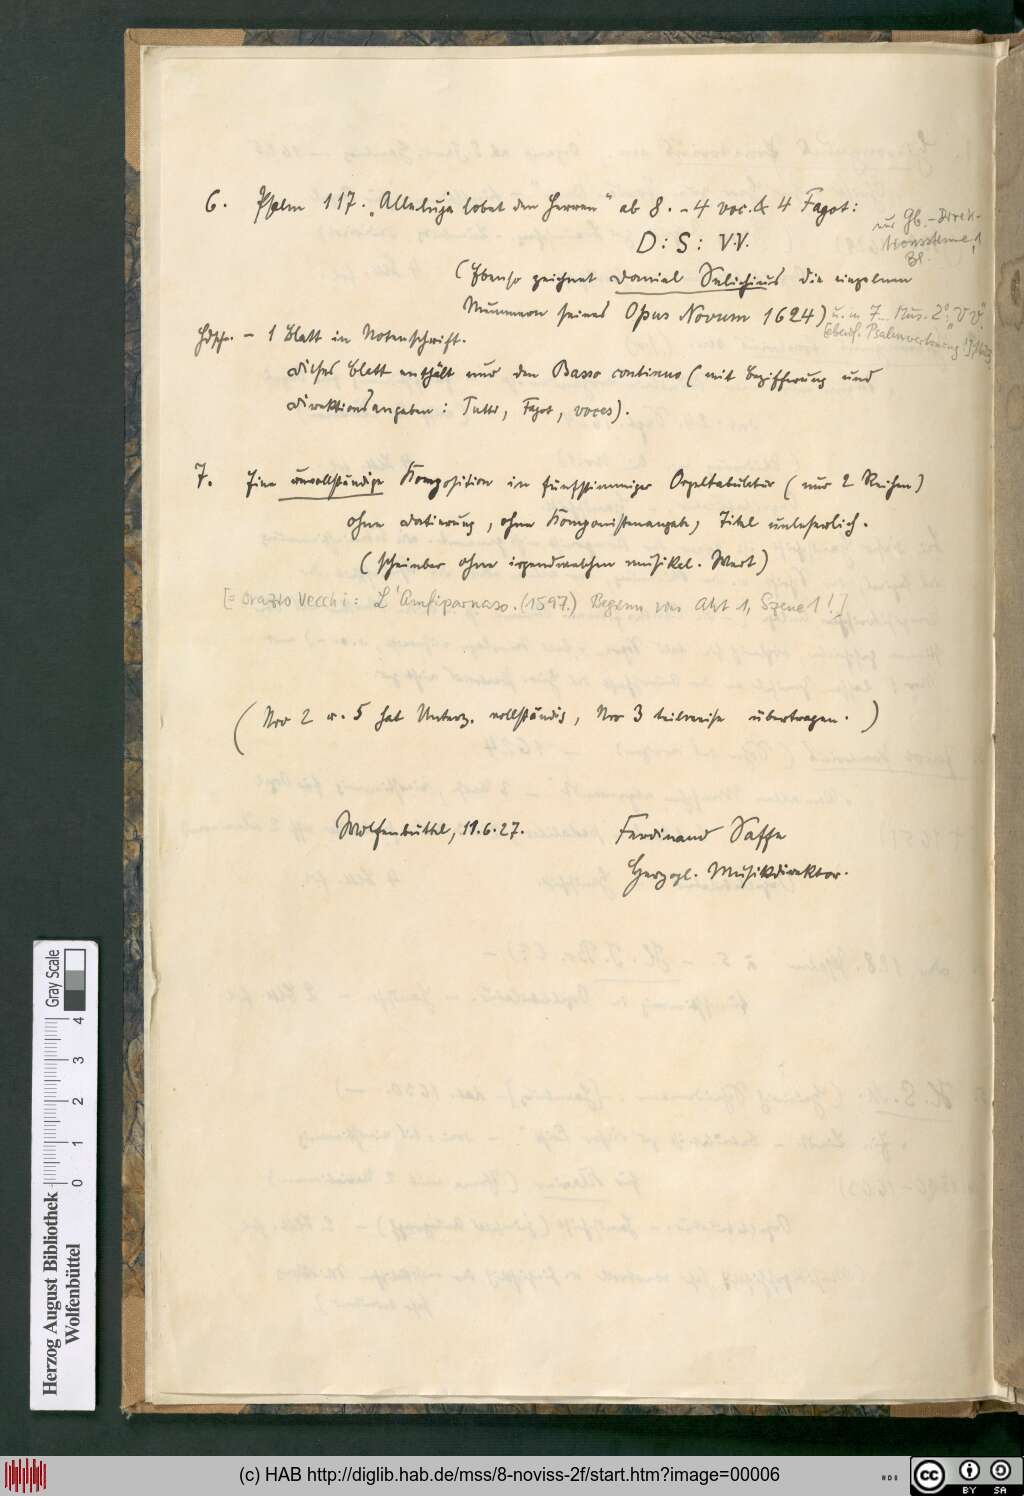 6. Psalm 117. „Alleluja lobet den Herren“ ab 8. - 4 voc. & 4 Fagot:
nur Gb.-Direk-
tionsstimme,
1 Bl.
D: S: V.V.
(Ebenso zeichnet Daniel Selichius die einzelnen
Nummern seines Opus Novum 1624) u. in 7. Mus. 2° „V V“
ebenf. Psalmvertonung
Hdschr. - 1 Blatt in Notenschrift.
Dieses Blatt enthält nur den Basso continuo (mit Bezifferung und
Direktionsangaben: Tutti, Fagot, voces).
7. Eine unvollständige Komposition in fünfstimmiger Orgeltabulatur (nur 2 Reihen)
ohne Datierung, ohne Komponistenangabe, Titel unleserlich.
(scheinbar ohne irgendwelchen musikal. Wert)
[= Orazio Vecchi: L'Amfiparnaso. (1597.) Beginn von Akt 1, Szene 1!]
(Nro 2 u. 5 hat Unterz. vollständig, Nro 3 teilweise übertragen.)
Wolfenbüttel, 11.6.27.
Ferdinand Saffe
Herzogl. Musikdirektor.
Gray Scale
4 3 2 1 0
Herzog August Bibliothek
Wolfenbüttel
(c) HAB http://diglib.hab.de/mss/8-noviss-2f/start.htm?image=00006
cc BY SA